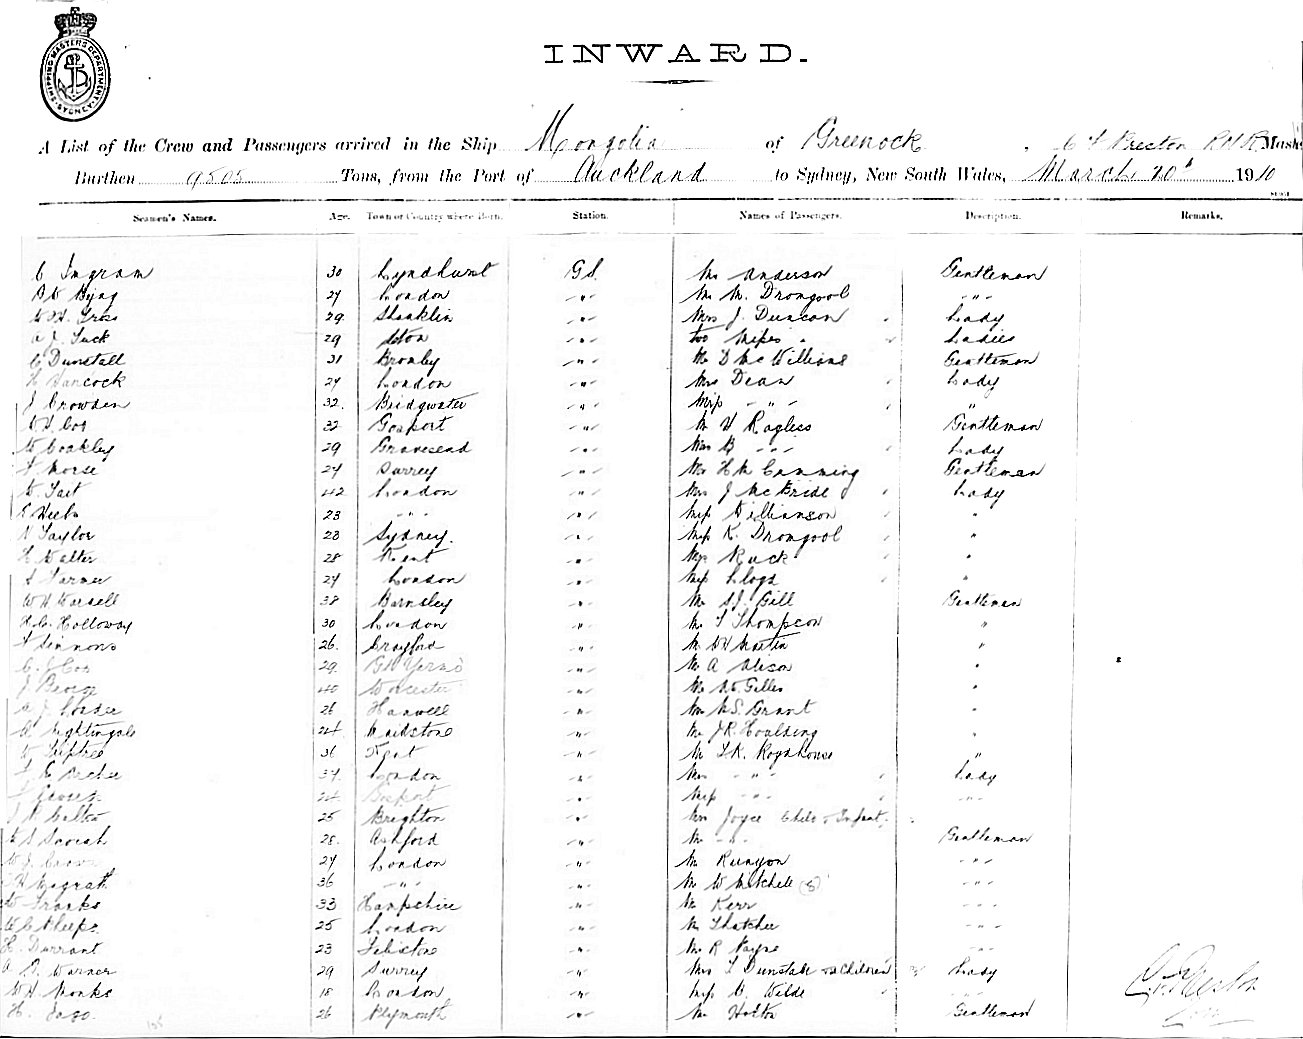 SHIPPING MASTER'S DEPARTMENT SYDNEY
INWARD.
A List of the Crew and Passengers arrived in the Ship Mongolia of Greenock, Preston RNR Master
Burthen 9505 Tons, from the Port of Auckland to Sydney, New South Wales, March 20th 1910
Seamen's Names. Age. Town or Country where Born. Station. Names of Passengers. Description. Remarks.
C Ingram 30 Lyndhurst G.S. Mr Anderson Gentleman
Byng 27 London " Mr M. Drongool "
Cross 29 Shanklin " Mrs J. Duncan Lady
A J. Tuck 29 " too Misses " Ladies
C Dunstall 31 Bromley " Mr D McWilliams Gentleman
H Hancock 27 London " Mrs Dean Lady
J Crowden 32 Bridgwater " Miss " "
W H. Cos 32 Gosport " Mr V Ragless Gentleman
W Coakley 29 Gravesend " Mrs B " Lady
F Morse 27 Surrey " Mr H M Cumming Gentleman
W. Tait 42 London " Mrs J McBride Lady
23 " " Miss Williamson "
N Taylor 23 Sydney. " Miss K. Drongool "
H Walter 28 Kent " Miss Ruck "
27 London " Miss "
W H 38 Barnsley " Mr S J. Gill Gentleman
H. C. Holloway 30 London " Mr T Thompson "
F Simmons 26 Crayford " Mr Martin "
C. J Cos 29 " Mr A Alison "
J 40 Worcester " Mr Gilles "
A J. 26 Hanwell " Grant "
Nightingale 24 Maidstone " Mr J R Houlding "
W Tiptree 36 Kent " Mr T. K. "
F E Archer 37 London " Mrs " Lady
24 Gosport " Miss " "
25 Brighton " Mrs Joyce Child & Infant
28 Ashford " Mr " Gentleman
W J. 27 London " Mr Runyon "
Magrath 36 " " Mr W Mitchell (S) "
W Franks 33 Hampshire " Mr Kerr "
W C 25 London " Mr Thatcher "
H. Durrant 23 " Mr R Payne "
A Warner 29 Surrey " Mrs T Dunstall & Children Lady
W H Monks 18 London " Miss Wilde "
H. 26 Plymouth " Mr Holton Gentleman
C F Preston